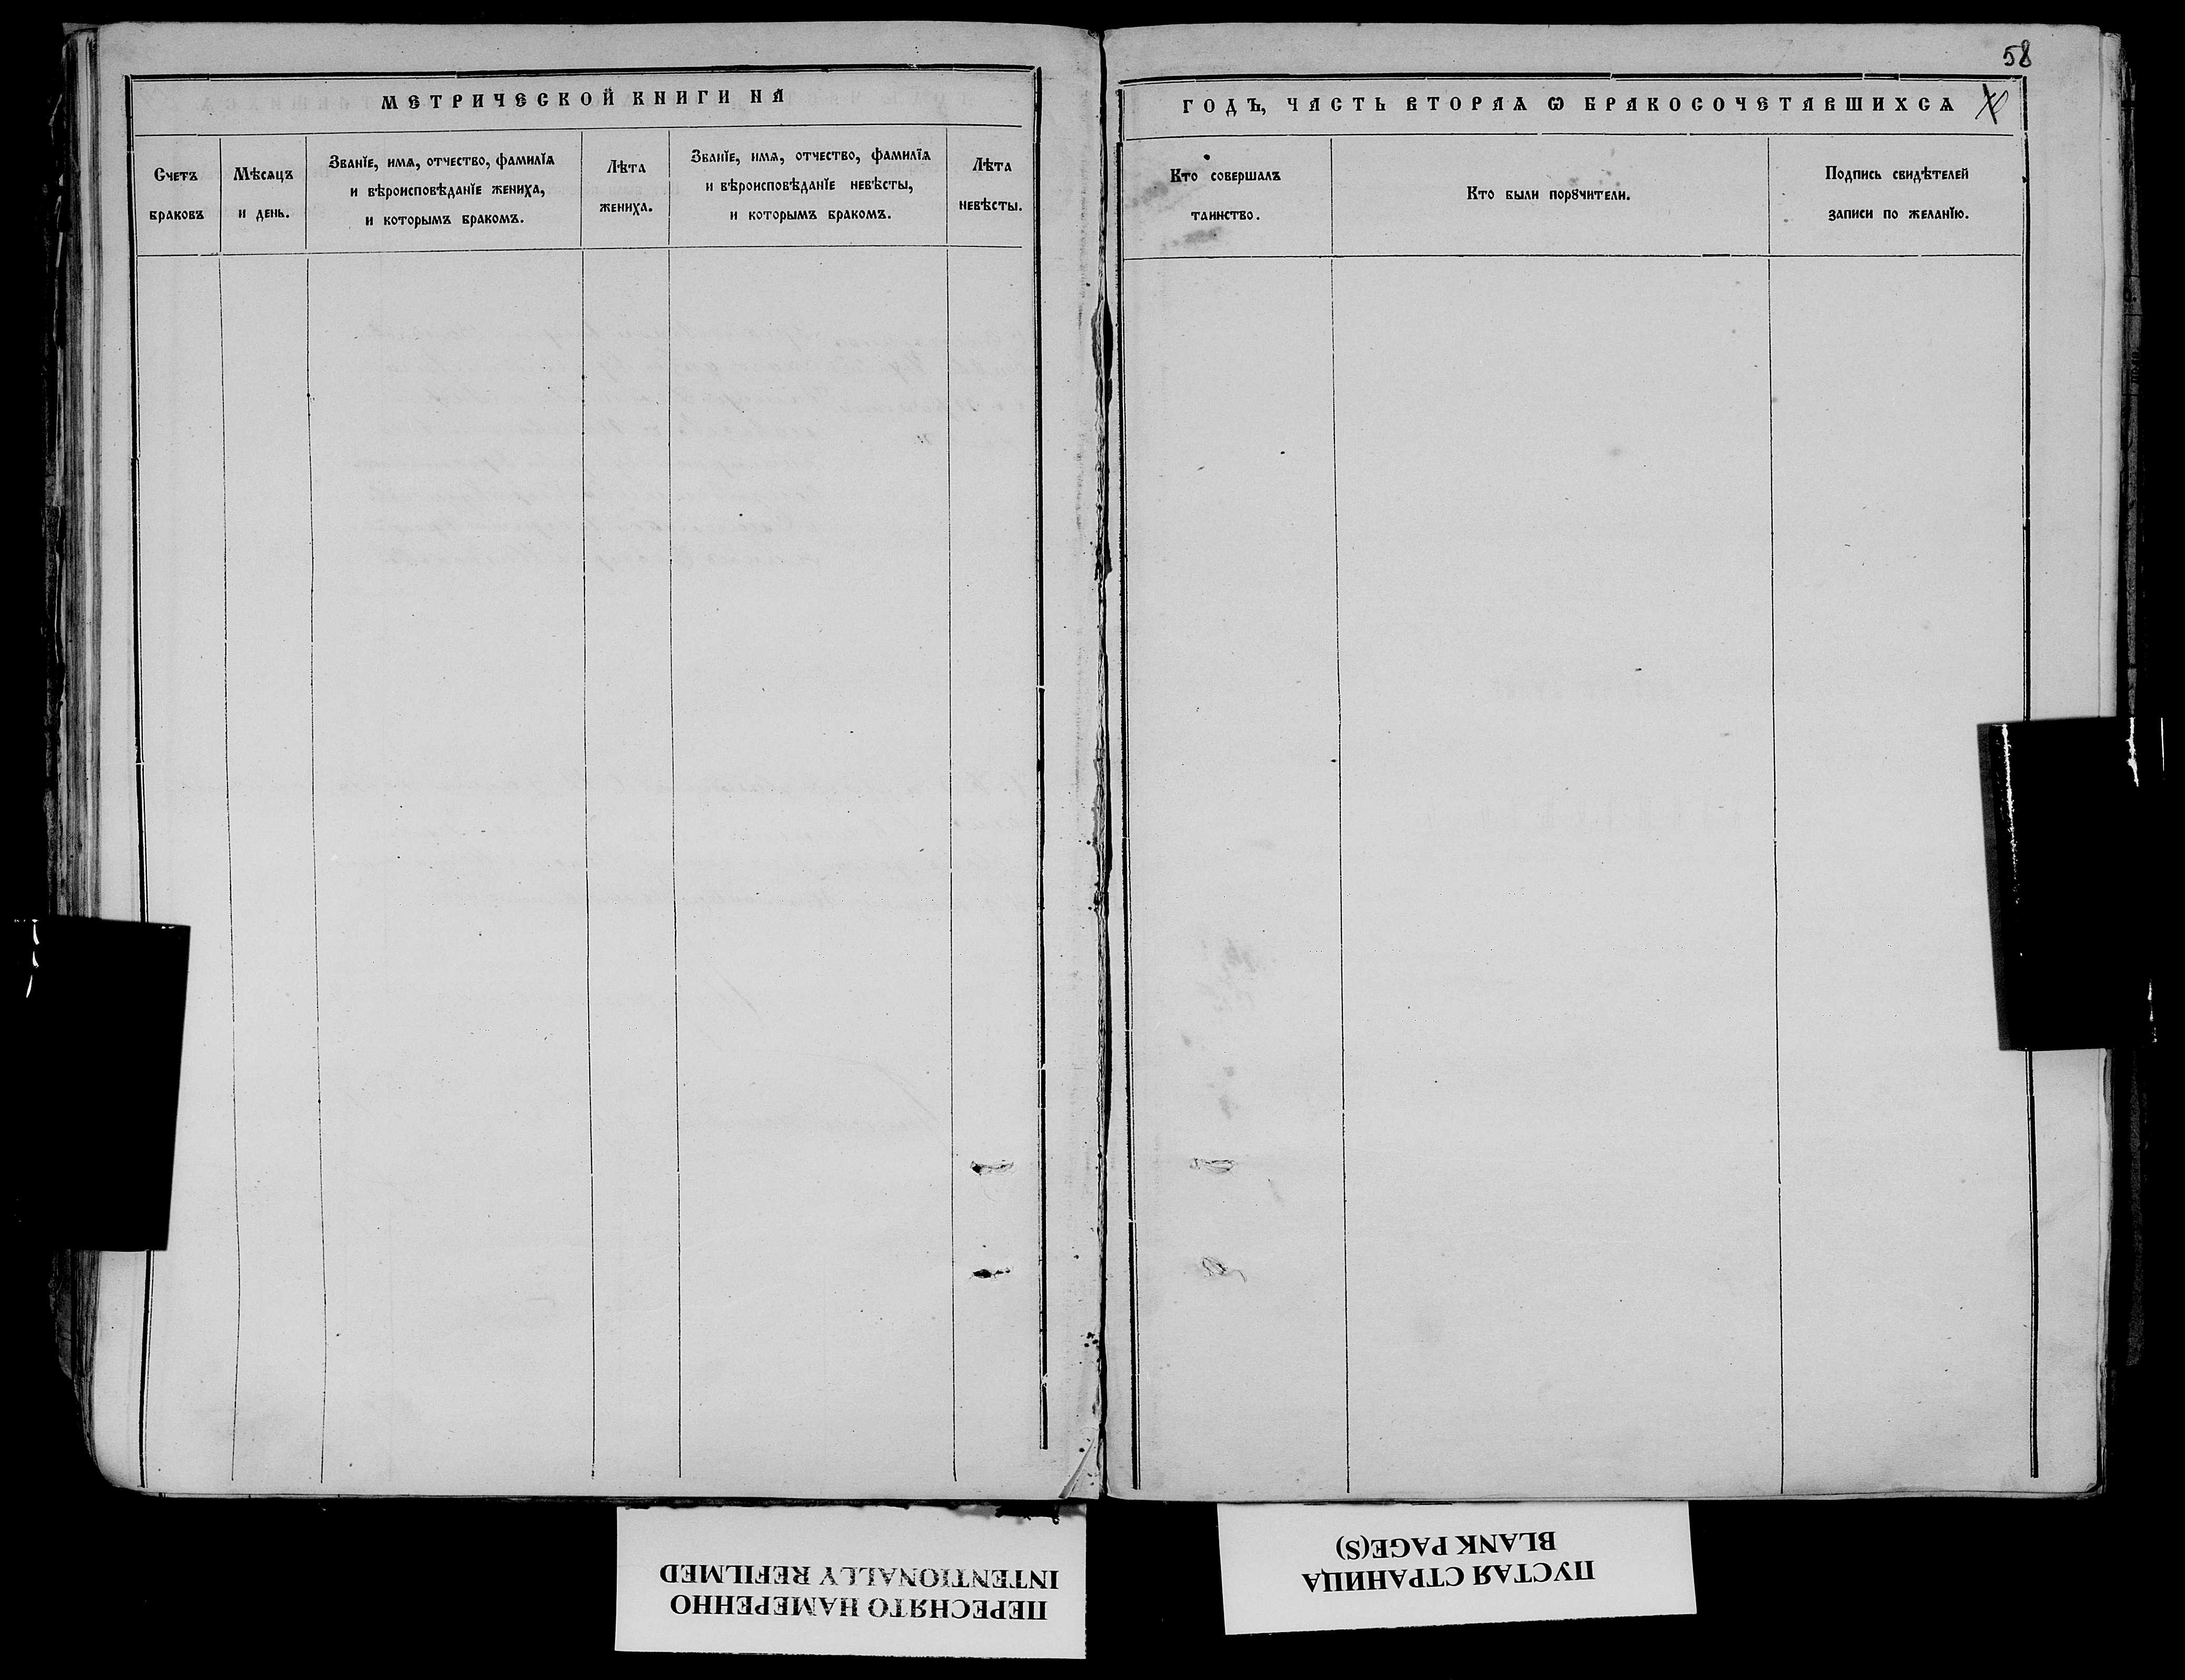 МЕТРИЧЕСКОЙ КНИГИ НА
Счетъ
браковъ
Мѣсѧцъ
и день.
Званїе, имѧ, отчество, фамилїѧ
и вѣроисповѣданїе жениха,
и которымъ бракомъ.
Лѣта
жениха.
Званїе, имѧ, отчество, фамилїѧ
и вѣроисповѣданїе невѣсты,
и которымъ бракомъ.
Лѣта
невѣсты.
58
ГОДЪ, ЧАСТЬ ВТОРАѦ Ѡ БРАКОСОЧЕТАВШИХСѦ
Кто совершалъ
таинство.
Кто были порꙋчители.
Подпись свидѣтелей
записи по желанїю.
ПЕРЕСНЯТО НАМЕРЕННО
INTENTIONALLY REFILMED
ПУСТАЯ СТРАНИЦА
BLANK PAGE(S)